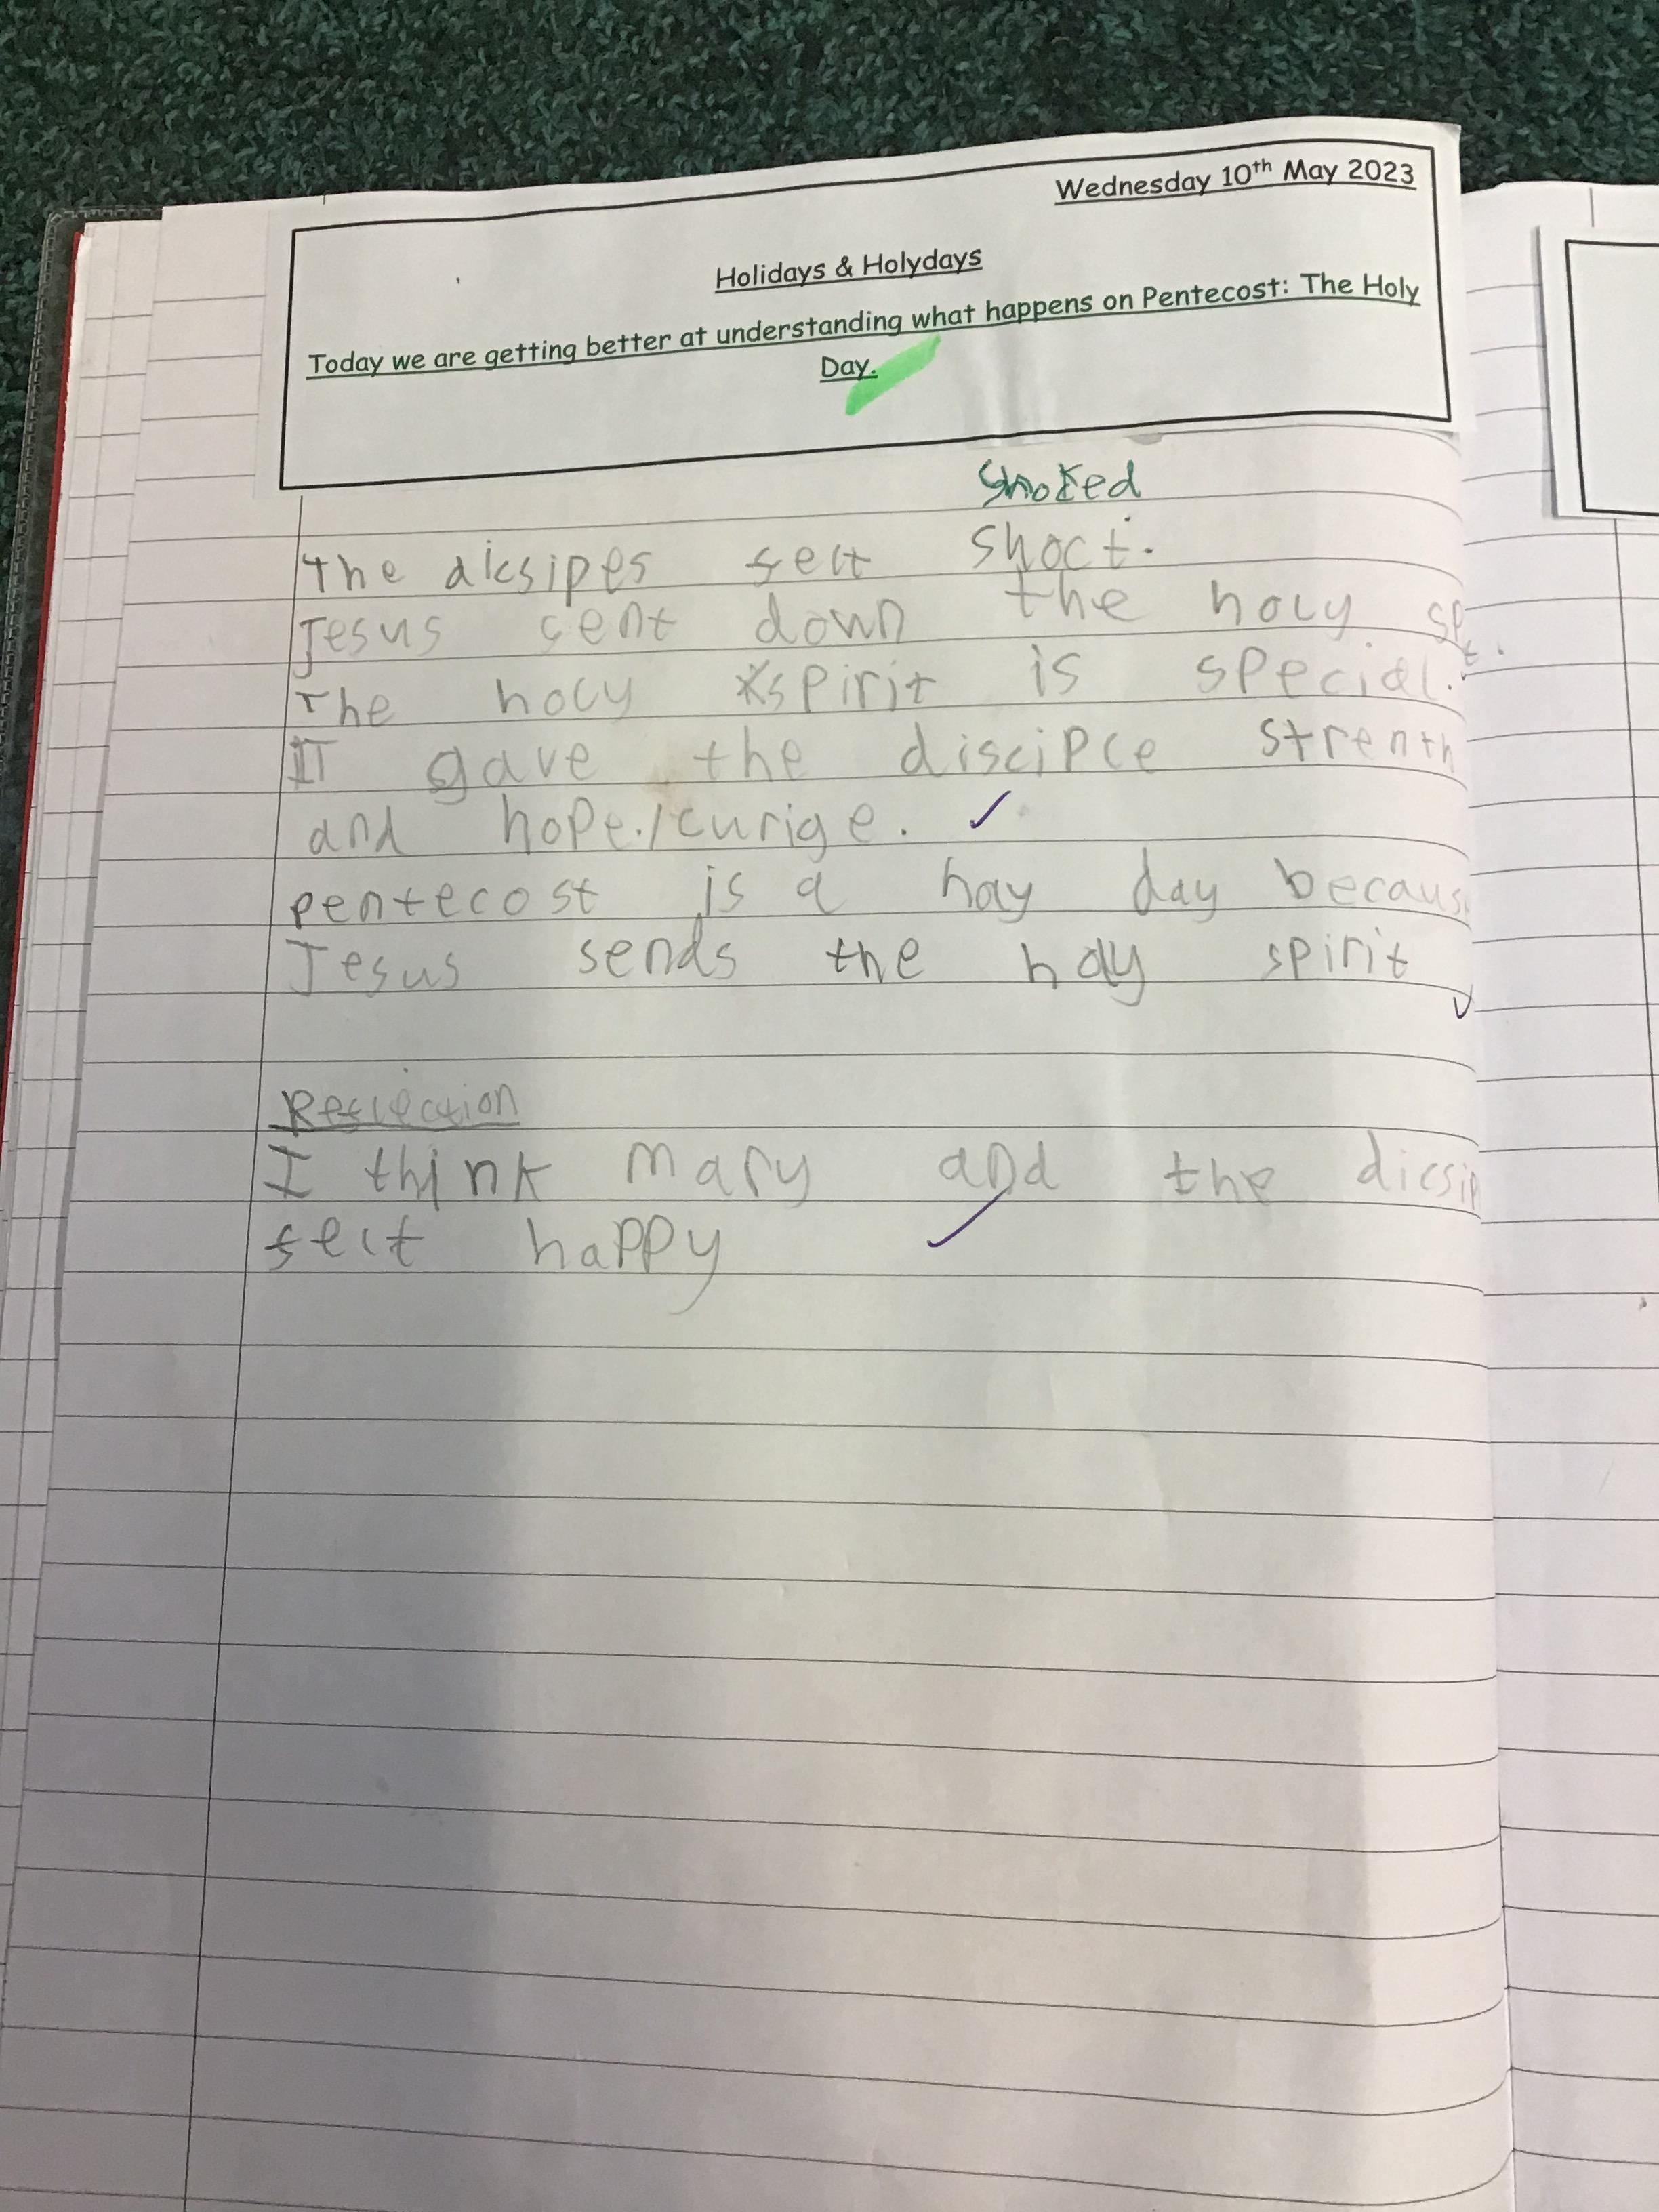 Wednesday 10th May 2023
Holidays & Holydays
Today we are getting better at understanding what happens on Pentecost: The Holy
Day.
Shoked
The diksipes felt shoct.
Jesus sent down the holy
The holy spirit is special.
IT gave the disciple strenth
and hope./curige.
pentecost is a hoy day becaus
Jesus sends the holy spirit
Reflection
I think mary and the dicsip
felt happy